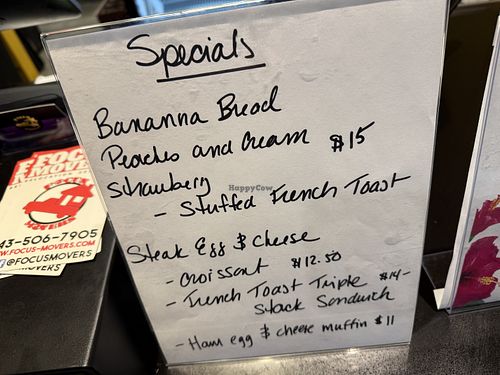 Specials
Bananna Bread
Peaches and Cream $15
Strawberry
- Stuffed French Toast
Steak Egg $ Cheese
- Croissant $12.50
- French Toast Triple $14-
Stack Sandwich
- Ham egg $ cheese muffin $11
HappyCow
43-506-7905
.FOCUS-MOVERS.COM
@FOCUSMOVERS